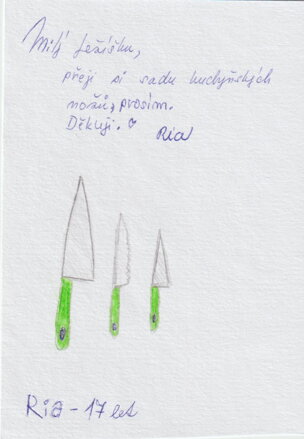 Milý Ježíšku,
přeji si sadu kuchyňských
nožů, prosím.
Děkuji. ♡
Ria
Ria - 17 let